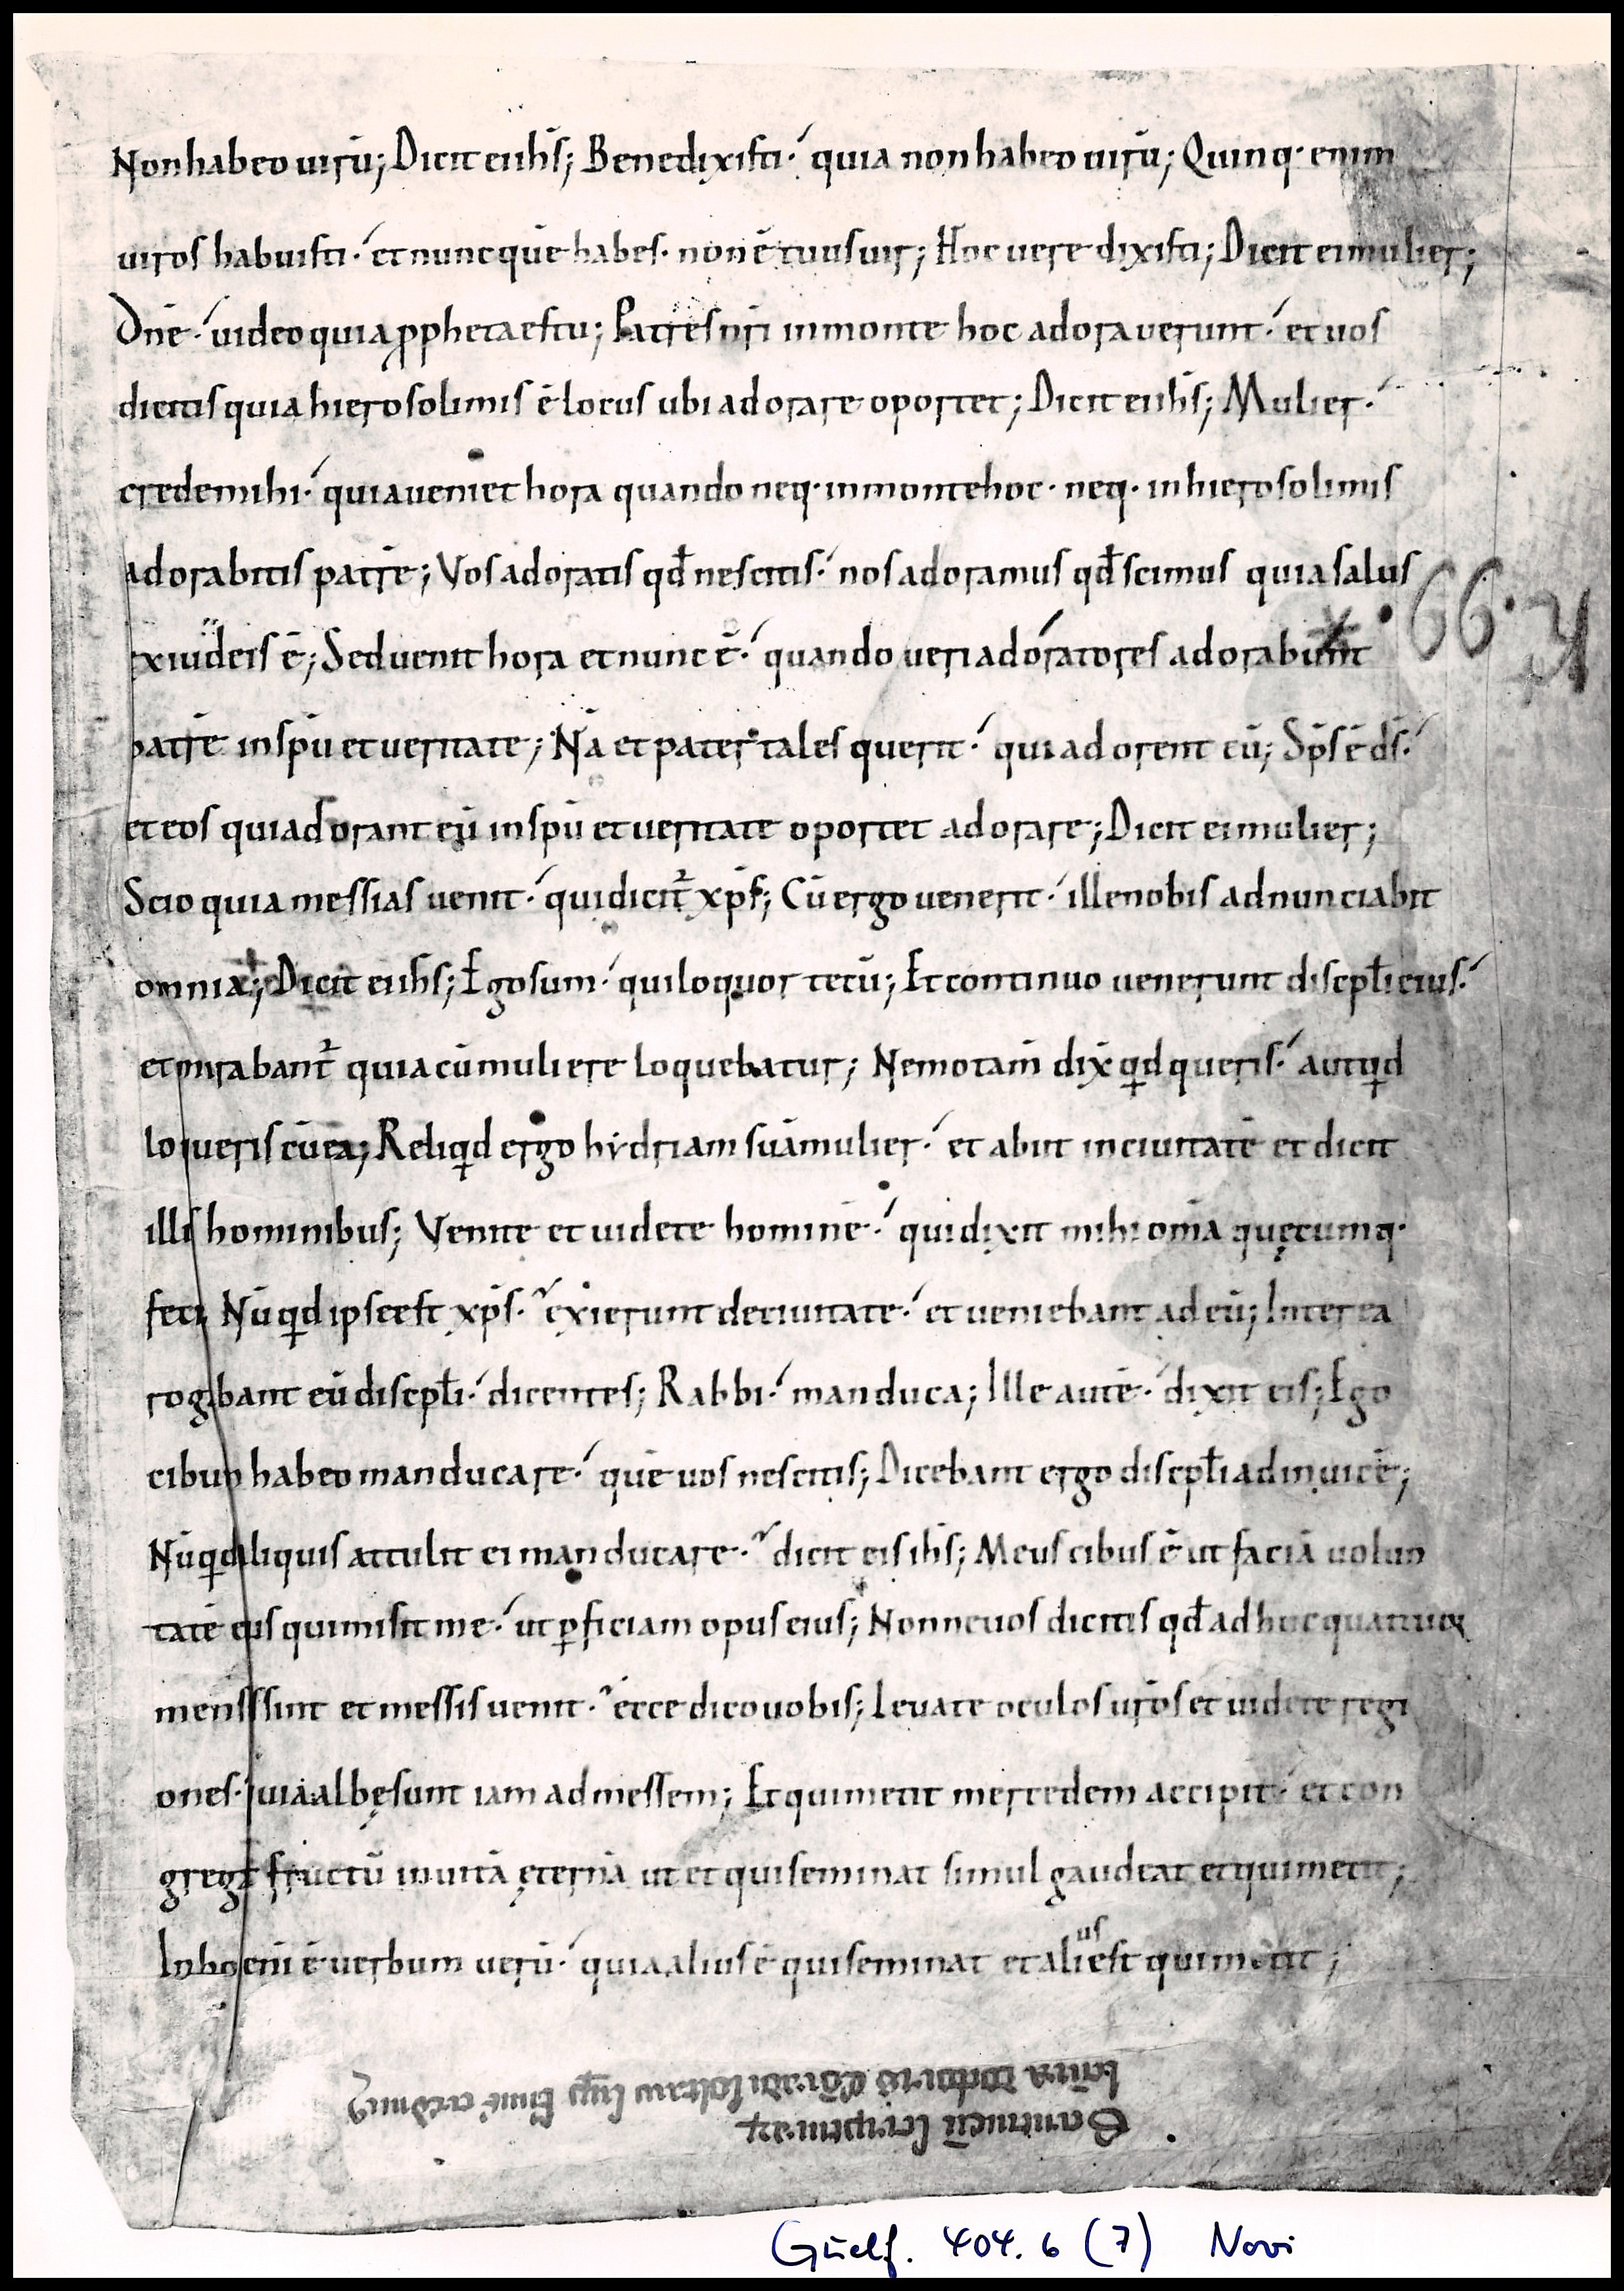 Non habeo uirū; Dicit ei ihs̄; Bene dixisti · quia non habeo uirū; Quinq· enim
uiros habuisti · et nunc quē habes · non ē tuus uir; Hoc uere dixisti; Dicit ei mulier;
Dn̄e · uideo quia ppheta es tu; Patres nr̄i in monte hoc adorauerunt · et uos
dicitis quia hierosolimis ē locus ubi adorare oportet; Dicit ei ihs̄; Mulier ·
crede mihi · quia ueniet hora quando neq· in monte hoc · neq· in hierosolimis
adorabitis patrē; Vos adoratis qd̄ nescitis · nos adoramus qd̄ scimus quia salus
ex iudeis ē; Sed uenit hora et nunc ē · quando ueri adoratores adorabunt
patrē in spū et ueritate; Nā et pater tales querit · qui adorent eū; Sp̄s ē ds̄ ·
et eos qui adorant eū in spū et ueritate oportet adorare; Dicit ei mulier;
Scio quia messias uenit · qui dicit̄ xp̄s; Cū ergo uenerit · ille nobis adnunciabit
omnia; Dicit ei ihs̄; Ego sum · qui loquor tecū; Et continuo uenerunt discipłi eius ·
et mirabant̄ quia cū muliere loquebatur; Nemo tam̄ dix̄ qid queris · aut qid
loqueris cū ea; Reliqid ergo hẏdriam suā mulier · et abiit in ciuitatē et dicit
illis hominibus; Venite et uidete hominē · qui dixit mihi om̄a quęcumq·
feci Nūqid ipse est xp̄s · exierunt de ciuitate · et ueniebant ad eū; Interea
rogabant eū discipłi · dicentes; Rabbi · manduca; Ille autē · dixit eis; Ego
cibum habeo manducare · quē uos nescitis; Dicebant ergo discipłi ad inuicē;
Nūqid aliquis attulit ei manducare · dicit eis ihs̄; Meus cibus ē ut faciā uolun
tatē eius qui misit me · ut pficiam opus eius; Nonne uos dicitis qd̄ adhuc quattuor
menses sunt et messis uenit · ecce dico uobis; Leuate oculos ur̄os et uidete regi
ones · quia albę sunt iam ad messem; Et qui metit mercedem accipit · et con
gregat fructū in uitā ęternā ut et qui seminat simul gaudeat et qui metit;
In hoc eni ē uerbum uerū · quia alius ē qui seminat et alius est qui metit;
K. 99.
Guelf. 404.6 (7) Novi